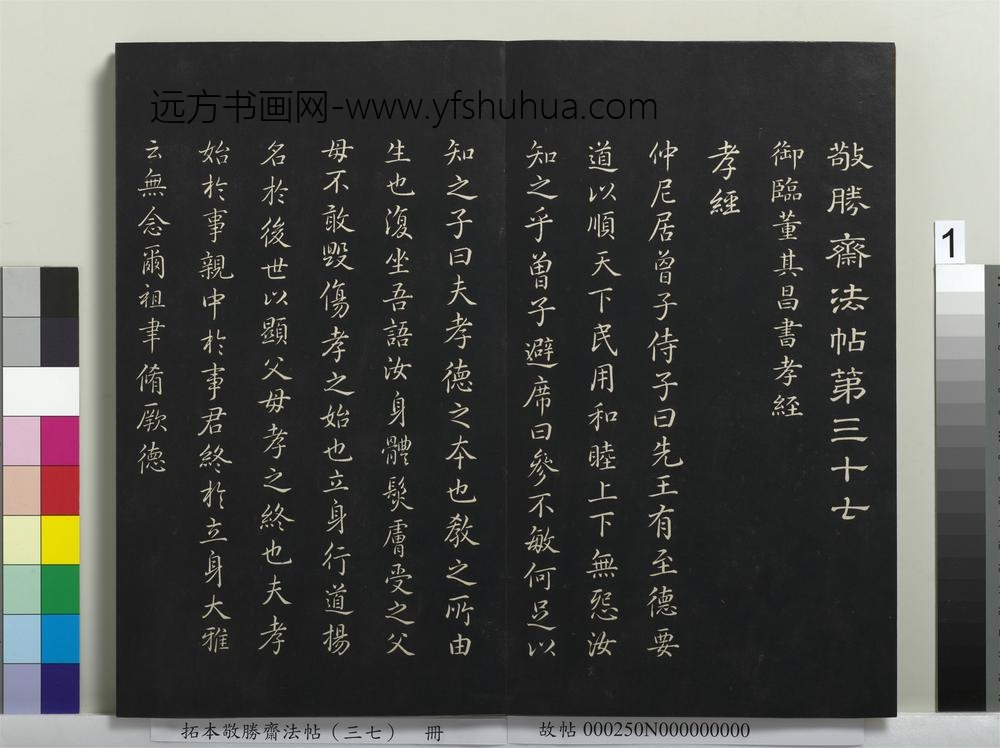 远方书画网-www.yfshuhua.com
敬勝齋法帖第三十七
御臨董其昌書孝經
孝經
仲尼居曾子侍子曰先王有至德要
道以順天下民用和睦上下無怨汝
知之乎曾子避席曰參不敏何足以
知之子曰夫孝德之本也教之所由
生也復坐吾語汝身體髮膚受之父
母不敢毀傷孝之始也立身行道揚
名於後世以顯父母孝之終也夫孝
始於事親中於事君終於立身大雅
云無念爾祖聿脩厥德
1
拓本敬勝齋法帖（三七） 冊
故帖 000250N000000000